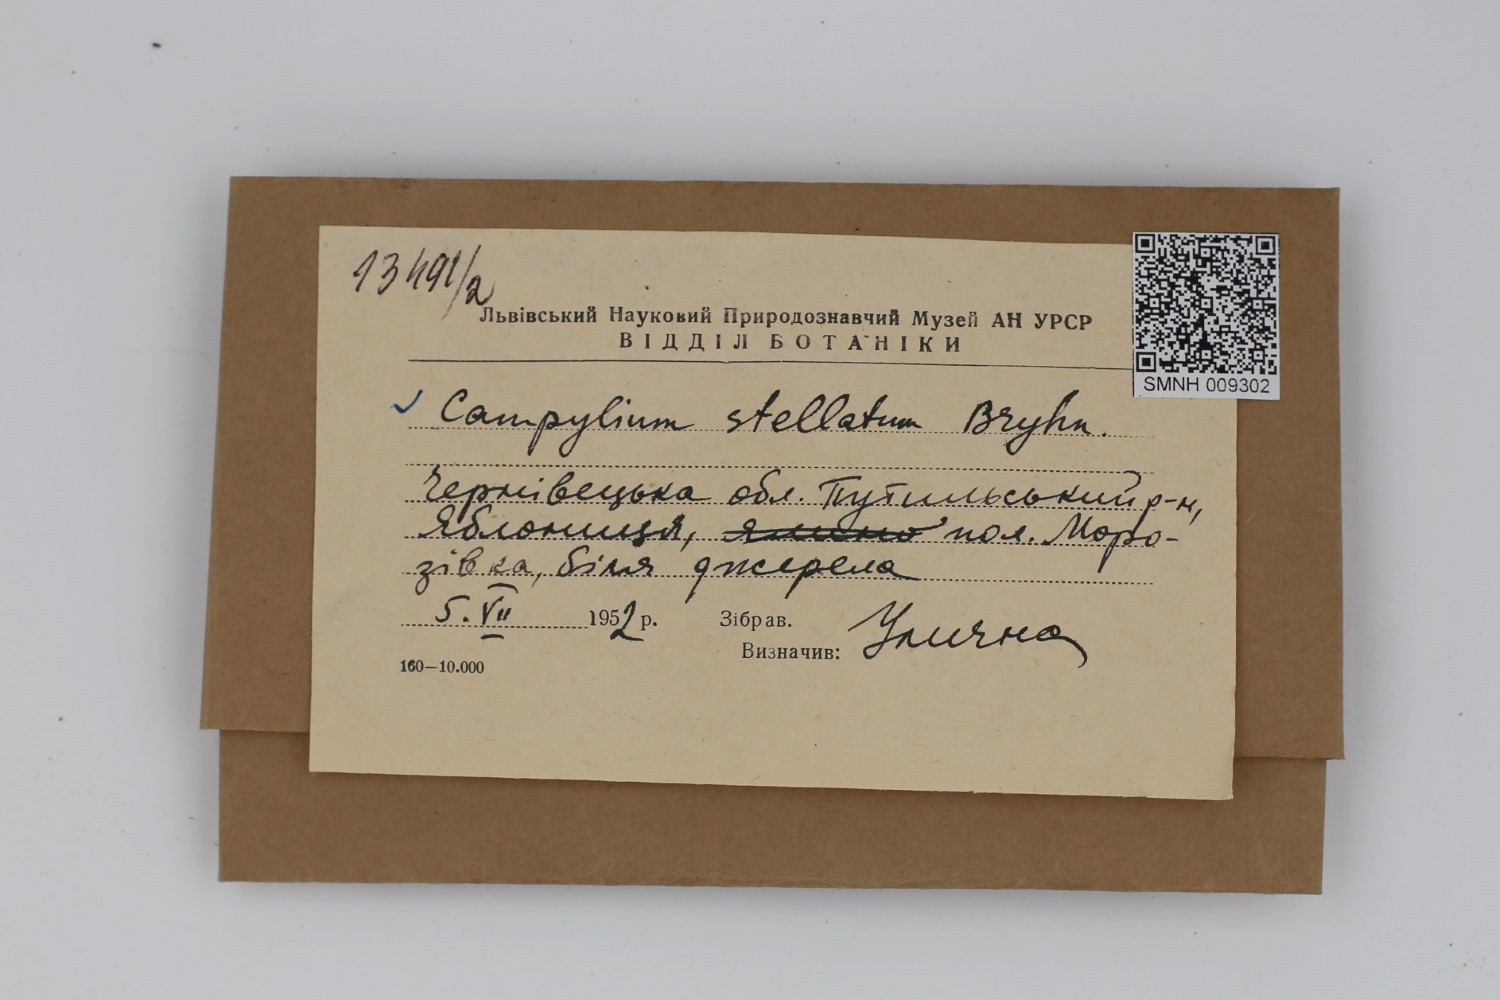 13491/2
Львівський Науковий Природознавчий Музей АН УРСР
ВІДДІЛ БОТАНІКИ
SMNH 009302
Campylium stellatum Bryhn.
Чернівецька обл. Путильський р-н,
Яблониця, пол. Моро-
зівка, біля джерела
5.VII 1952 р. Зібрав.
Визначив: Улична
160—10.000